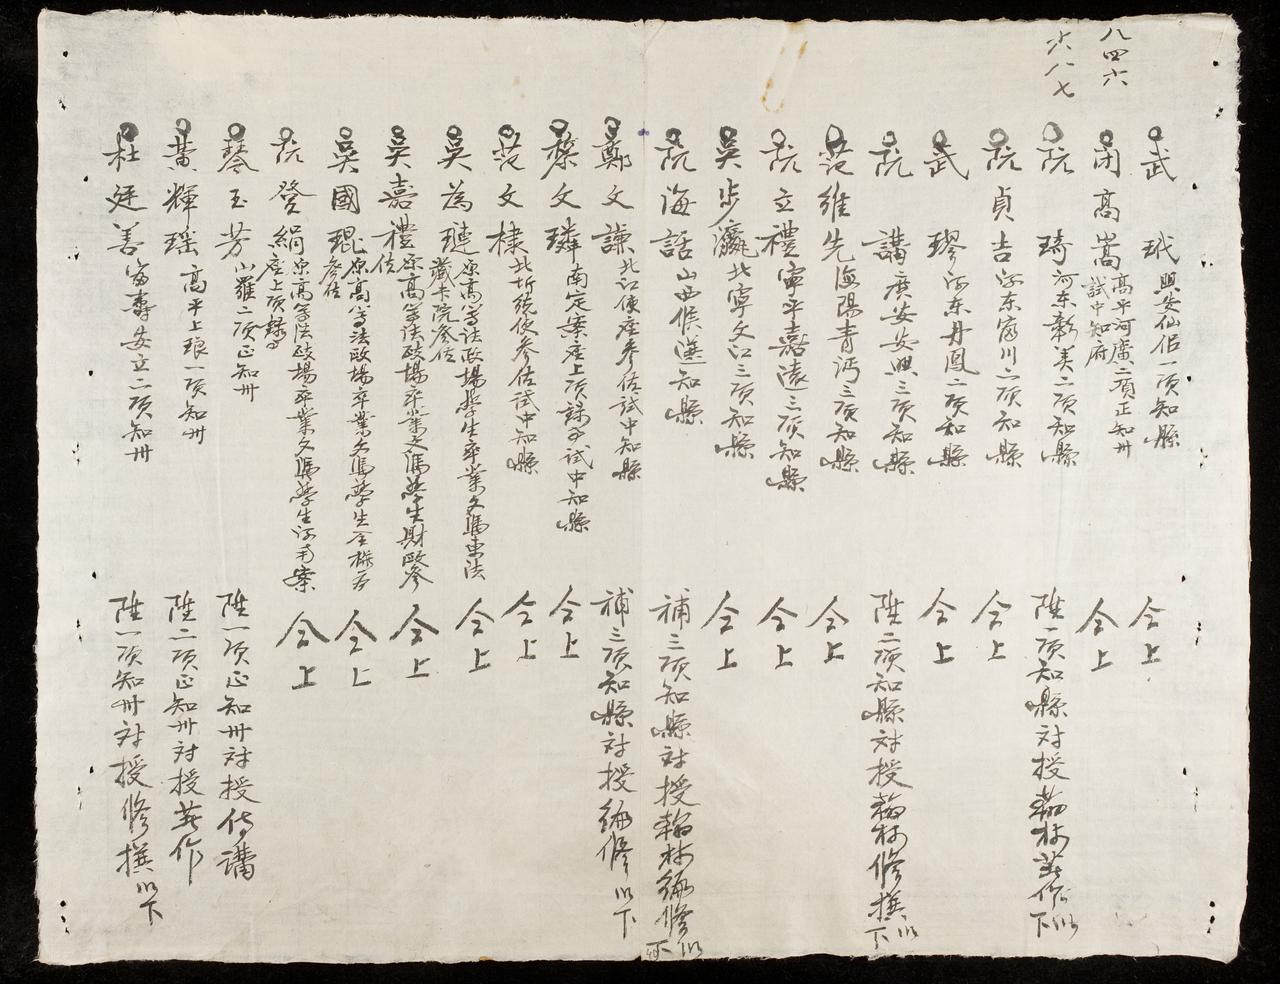 八四六
六八七
武玳 興安仙侶一項知縣 仝上
閉高嵩 高平河廣二項正知州試中知府 仝上
阮琦 河東彰美二項知縣 陞一項知縣对授翰林著作以下
阮貞吉 河東富川二項知縣 仝上
武璆 河东丹鳳二項知縣 仝上
阮講 廣安安興三項知縣 陞二項知縣对授翰林修撰以下
范維先 海陽青沔三項知縣 仝上
阮立禮 寧平嘉遠三項知縣 仝上
吳步瀛 北寧文江三項知縣 仝上
阮海話 山西候選知縣 補三項知縣对授翰林編修以下
鄭文謙 北江使座參佐試中知縣 補三項知縣对授編修以下
蔡文璘 南定案座上項錄事試中知縣 仝上
范文棣 北圻統使參佐試中知縣 仝上
吳為璉 原高等法政場學生卒業文憑東法藏卡院參佐 仝上
吳嘉禮 原高等法政場卒業文憑學生財政參佐 仝上
吳國琨 原高等法政場卒業文憑學生仝樞右參佐 仝上
阮登絹 原高等法政場卒業文憑學生河南案座上項錄事 仝上
琴玉芳 山羅二項正知州 陞一項正知州对授侍講
黃輝瑶 高平上琅一項知州 陞二項正知州对授著作
杜廷善 富壽安立二項知州 陞一項知州对授修撰以下